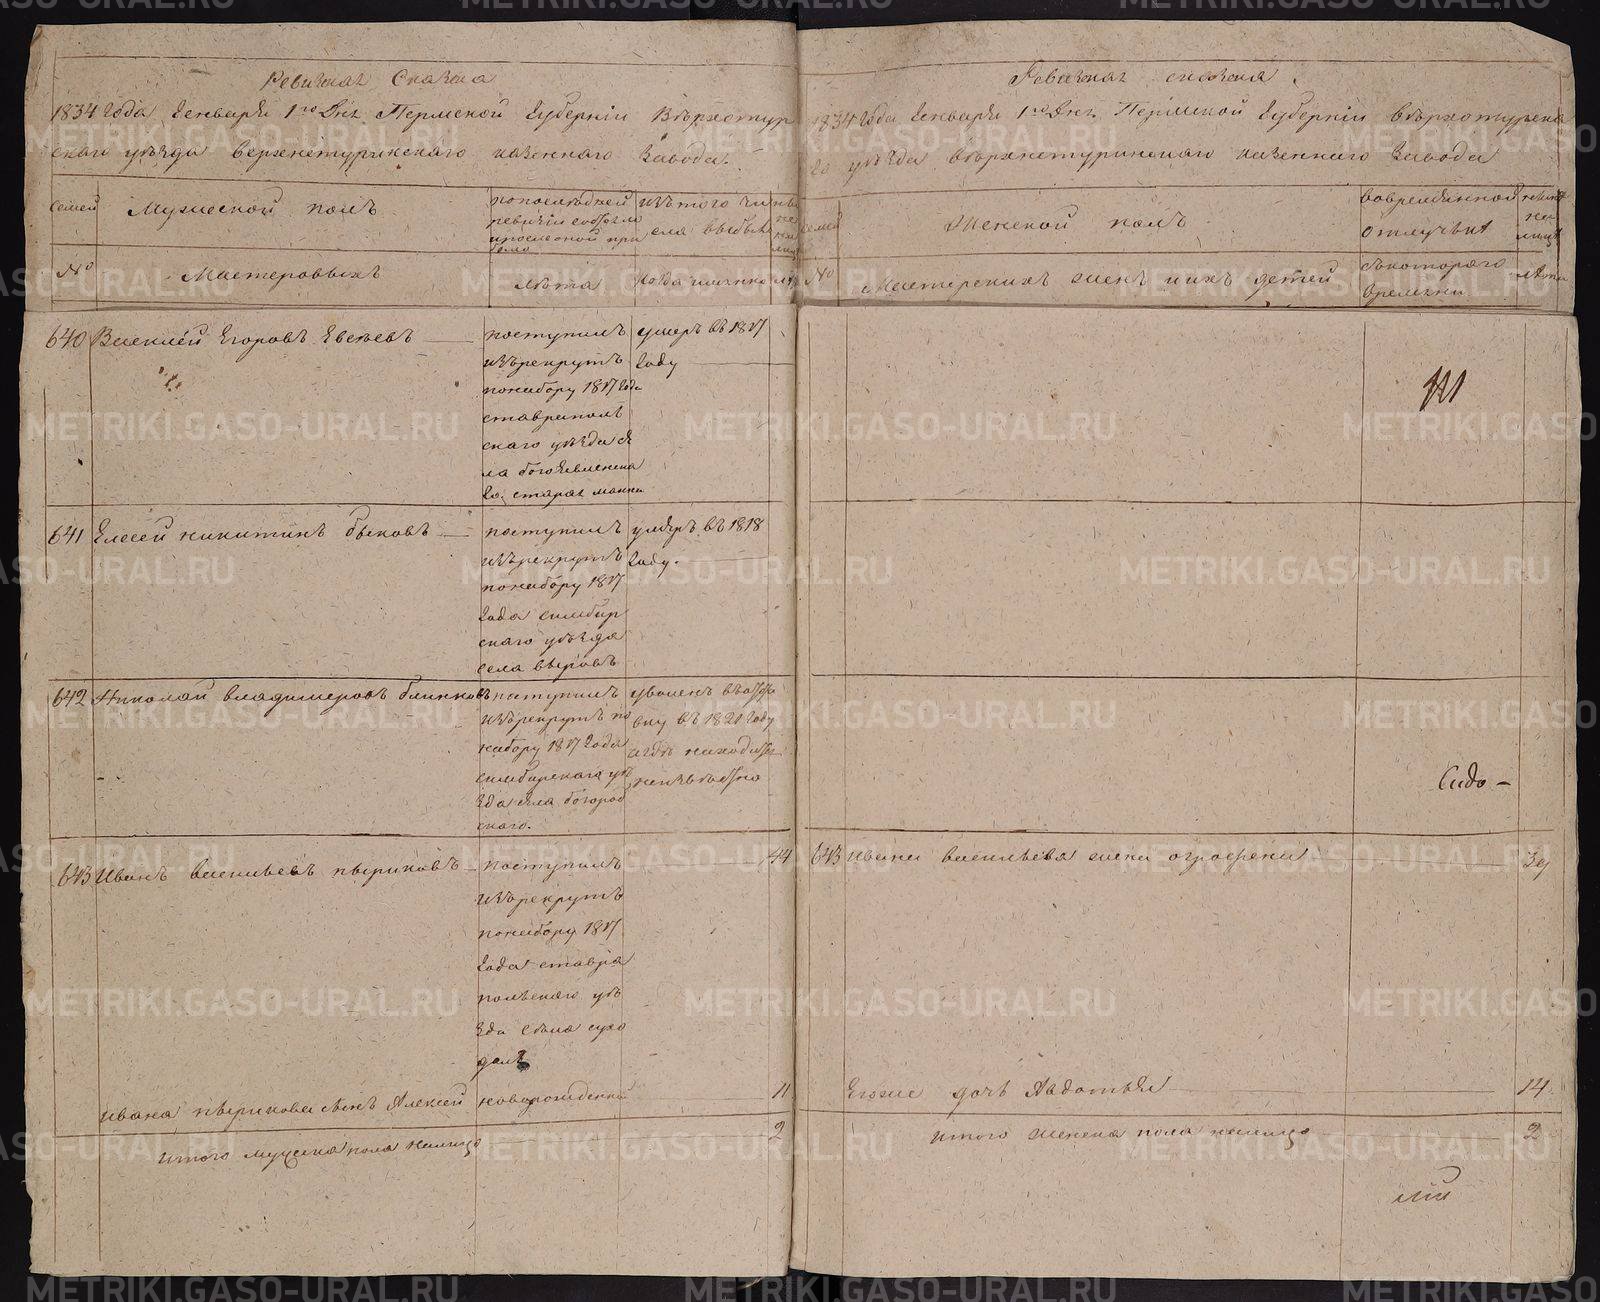 Ревизная Сказка
1834 Года Генваря 1го Дня Пермской Губернiи Верхотур
скаго уѣзда верхнетуринскаго казеннаго завода.
семей
Мужеской полъ
по последней
ревизiи состояло
и после оной при
было
изъ того чи
сла выбыло
№
Мастеровыхъ
лѣта
когда именно
640 Василей Егоровъ Евсѣевъ
поступилъ
изъ рекрутъ
по набору 1817 года
ставрополь
скаго уѣзда се
ла богоявленска
го старая маина
умеръ въ 1817
году
641 Елесей никитинъ быковъ
поступилъ
изъ рекрутъ
по набору 1817
года симбир
скаго уѣзда
села выровъ
умеръ въ 1818
году.
642 Николай владимеровъ блинковъ
поступилъ
изъ рекрутъ по
набору 1817 года
симбирскаго уѣ
зда села богород
скаго.
уволенъ въ отста
вку въ 1821 году
и гдѣ находится
неизвѣстно
643 Иванъ васильевъ пыриковъ
поступилъ
изъ рекрутъ
по набору 1817
года ставро
польскаго уѣ
зда села сухо
долъ
44
ивана пырикова сынъ Алексей новорожденной 11
итого мужска пола налицо 2
Ревизная сказка.
1834 Года Генваря 1го Дня Пермской Губернiи верхотурска
го уѣзда верхнетуринскаго казеннаго завода
семей
Женской полъ
во временной
отлучьке
№
Мастерскихъ женъ и ихъ детей
съ котораго
времени
лѣта
643 ивана васильева жена аграфена 39
Егоже дочь Авдотья 14
итого женска пола налицо 2
METRIKI.GASO-URAL.RU